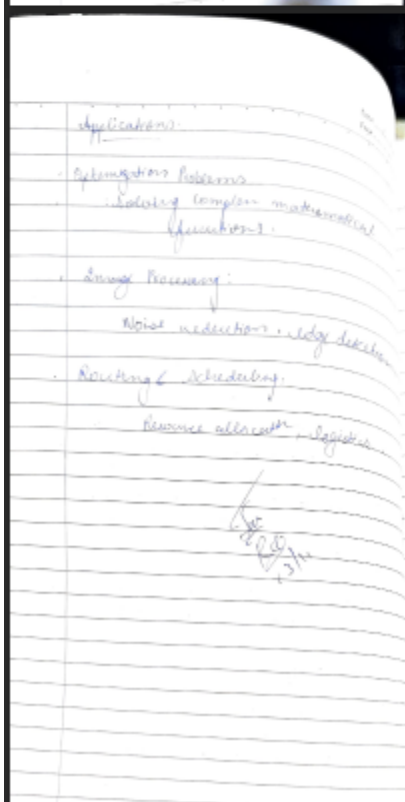 Applications.
. Optimization Problems
. Solving complex mathematical
functions.
. Image Processing:
Noise reduction, edge detection
. Routing & Scheduling.
Resource allocation, logistics